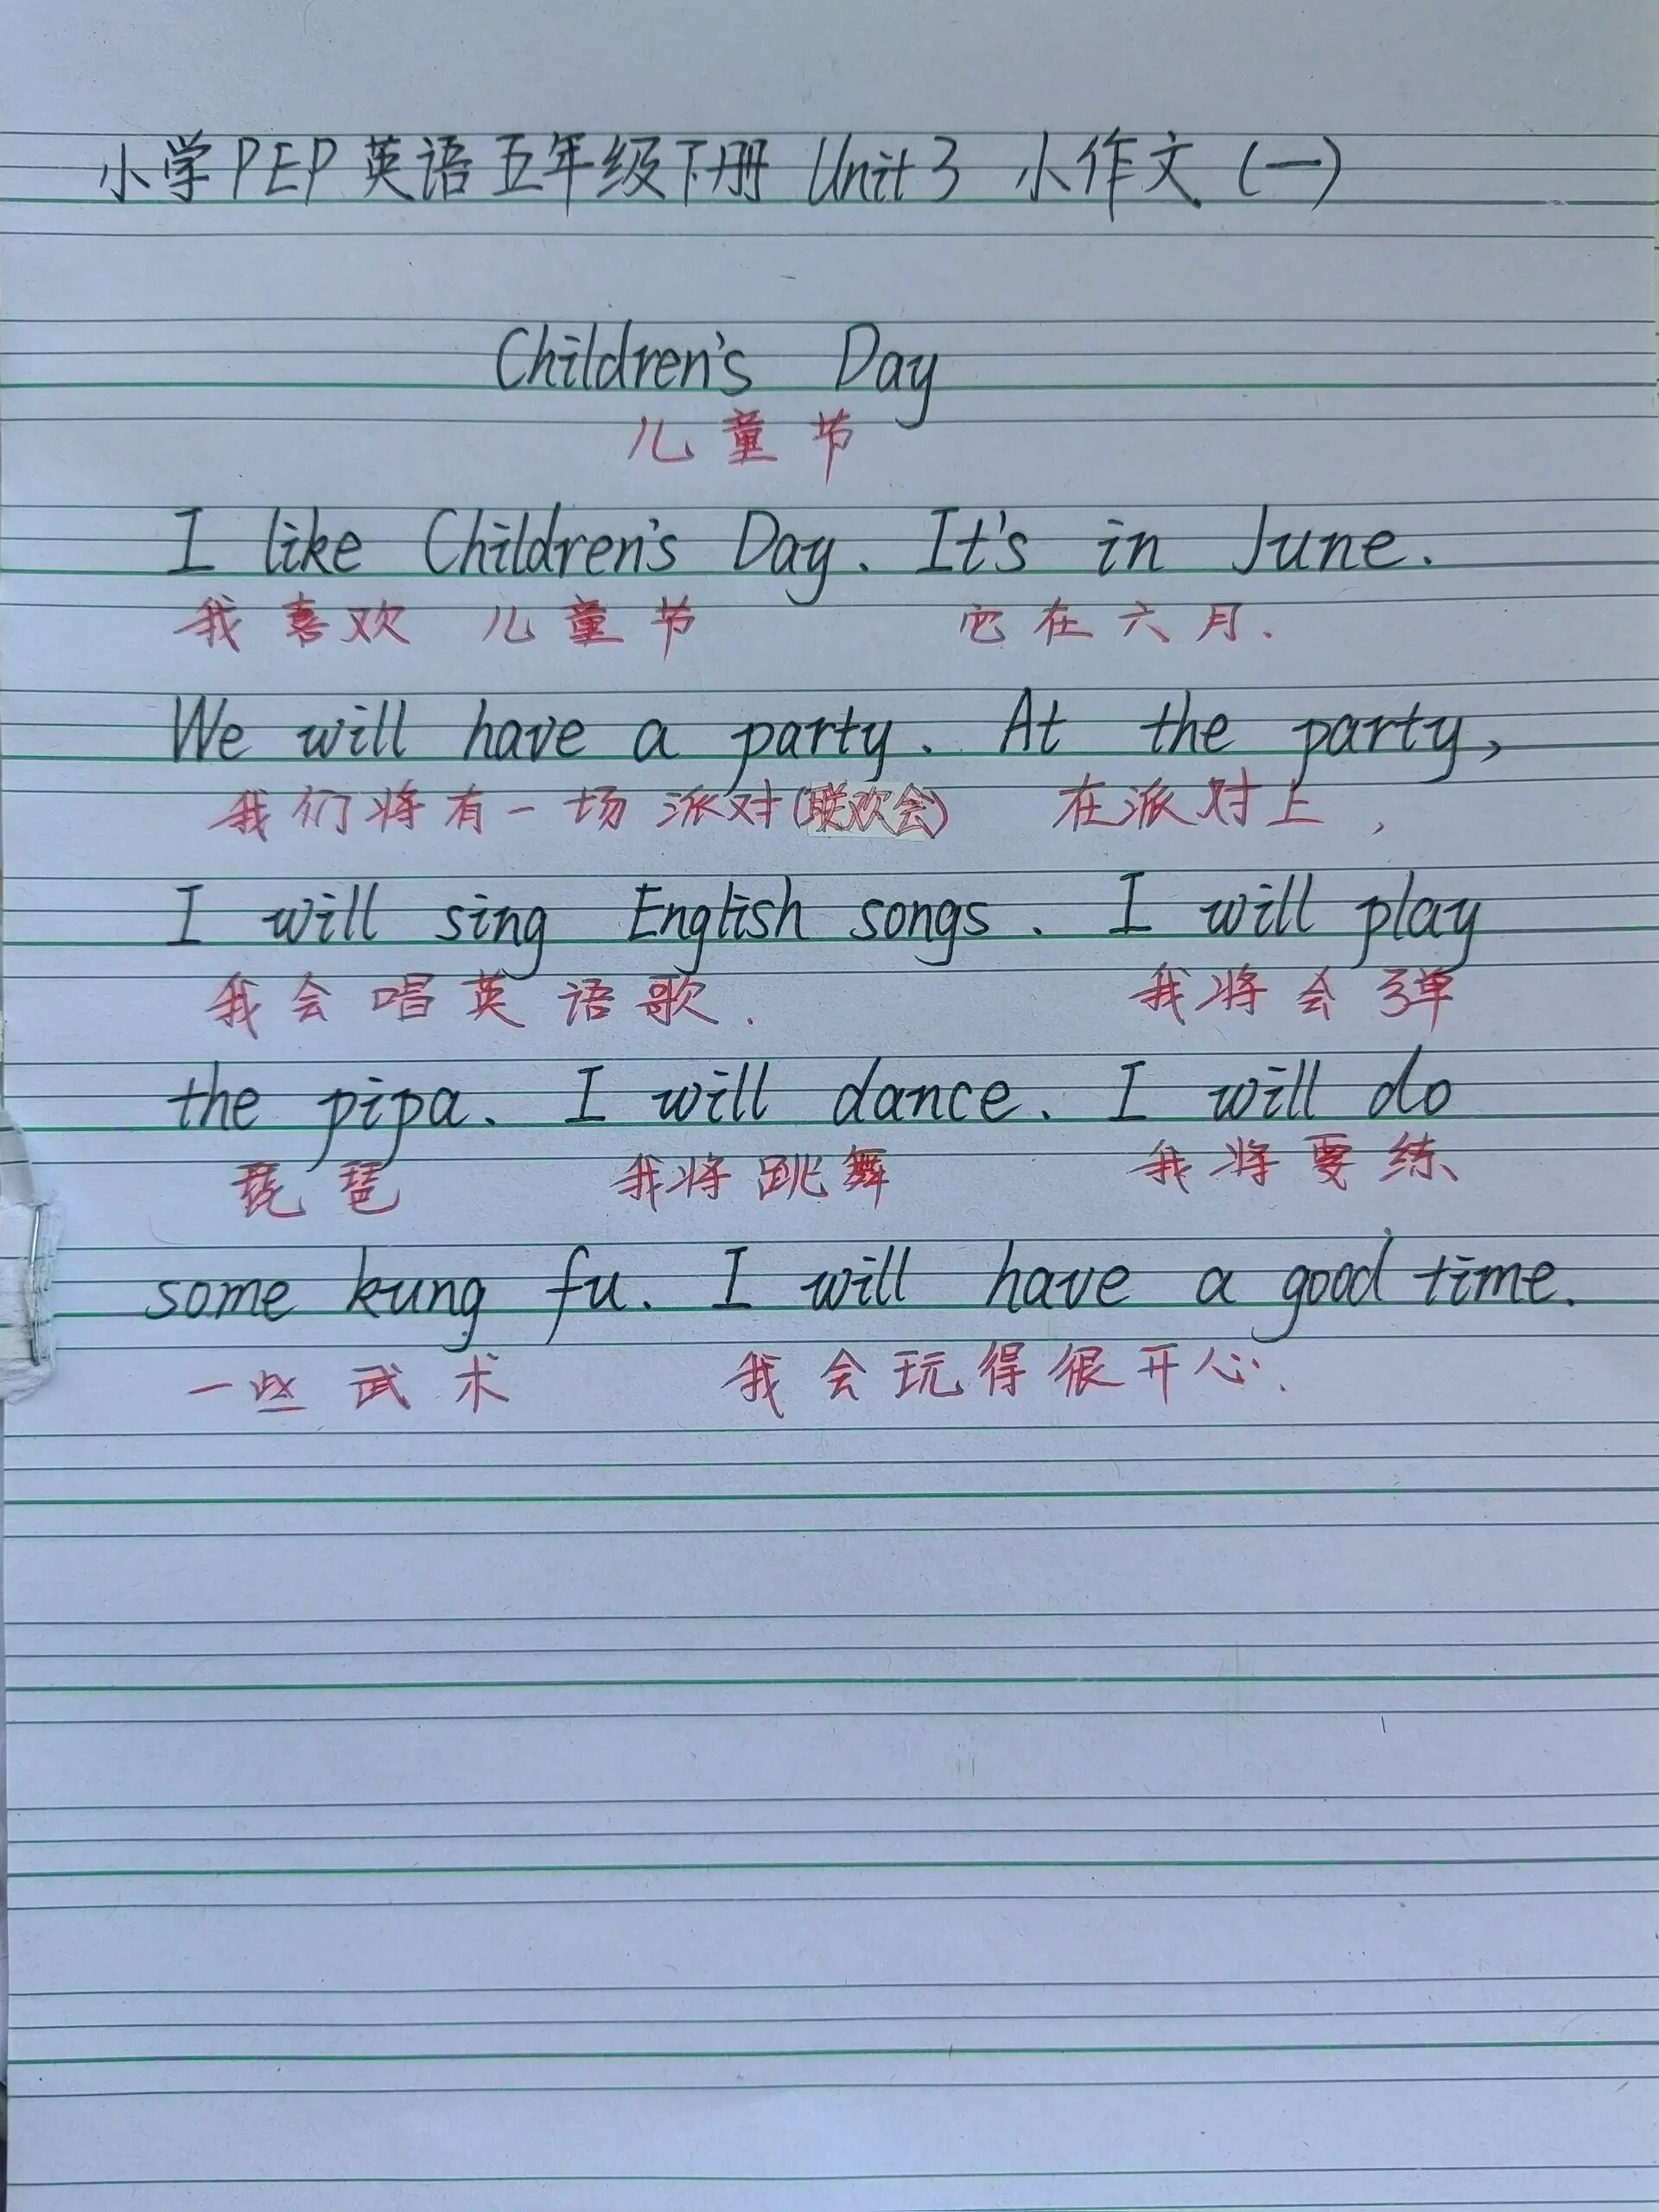 小学PEP英语五年级下册 Unit 3 小作文 (一)
Children's Day
儿童节
I like Children's Day. It's in June.
我喜欢 儿童节 它在六月.
We will have a party. At the party,
我们将有一场派对(联欢会) 在派对上,
I will sing English songs. I will play
我会唱英语歌. 我将会弹
the pipa. I will dance. I will do
琵琶 我将跳舞 我将要练
some kung fu. I will have a good time.
一些武术 我会玩得很开心.